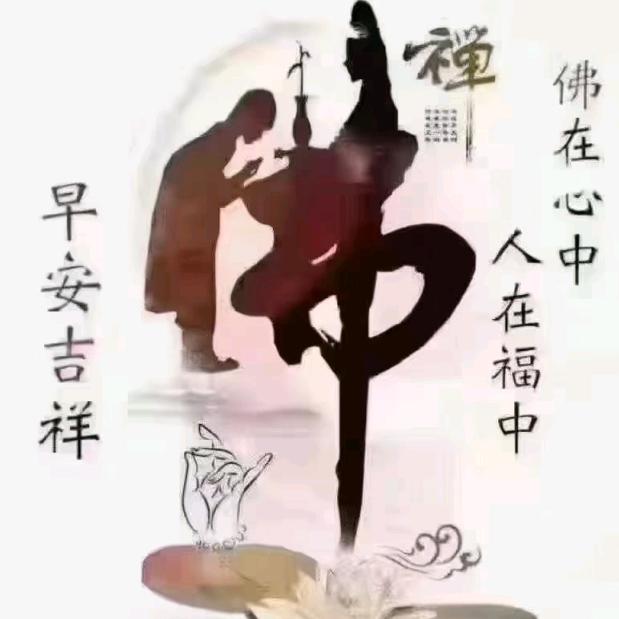 佛在心中
人在福中
禅
佛
早安吉祥